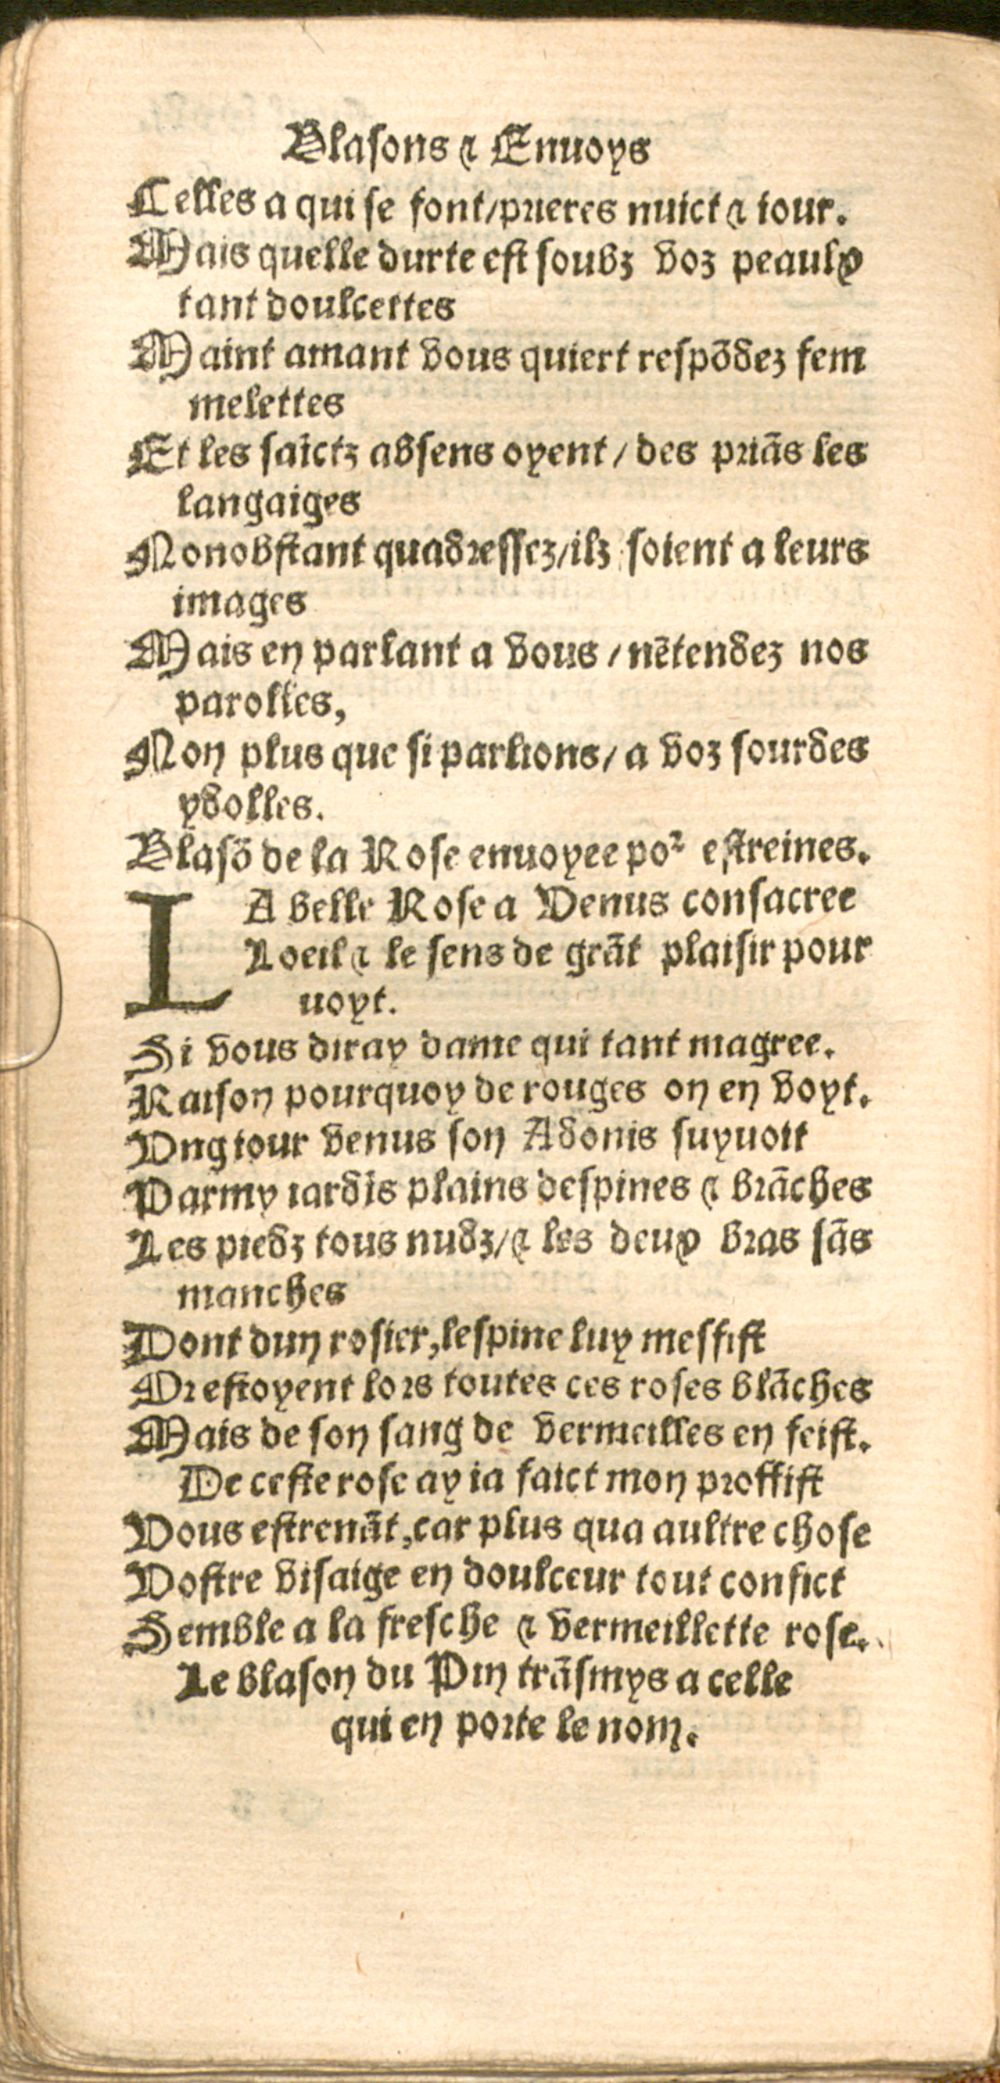 Blasons ⁊ Enuoys
Celles a qui se font/prieres nuict ⁊ iour.
Mais quelle durte est soubz voz peaulx
tant doulcettes
Maint amant vous quiert respōdez fem
melettes
Et les saictz absens oyent / des priās les
langaiges
Nonobstant quadressez/ilz soient a leurs
images
Mais en parlant a vous / nētendez nos
parolles,
Non plus que si parlions/ a voz sourdes
ydolles.
Blasō de la Rose enuoyee poᷣ estreines.
LA belle Rose a Venus consacree
Loeil ⁊ le sens de grāt plaisir pour
uoyt.
Si vous diray dame qui tant magree.
Raison pourquoy de rouges on en voyt.
Vng iour venus son Adonis suyuoit
Parmy iardīs plains despines ⁊ brāches
Les piedz tous nudz/⁊ les deux bras sās
manches
Dont dun rosier, lespine luy meffist
Or estoyent lors toutes ces roses blāches
Mais de son sang de vermeilles en feist.
De ceste rose ay ia faict mon proffist
Vous estrenāt, car plus qua aultre chose
Vostre visaige en doulceur tout confict
Semble a la fresche ⁊ vermeillette rose.
Le blason du Pin trāsmys a celle
qui en porte le nom.